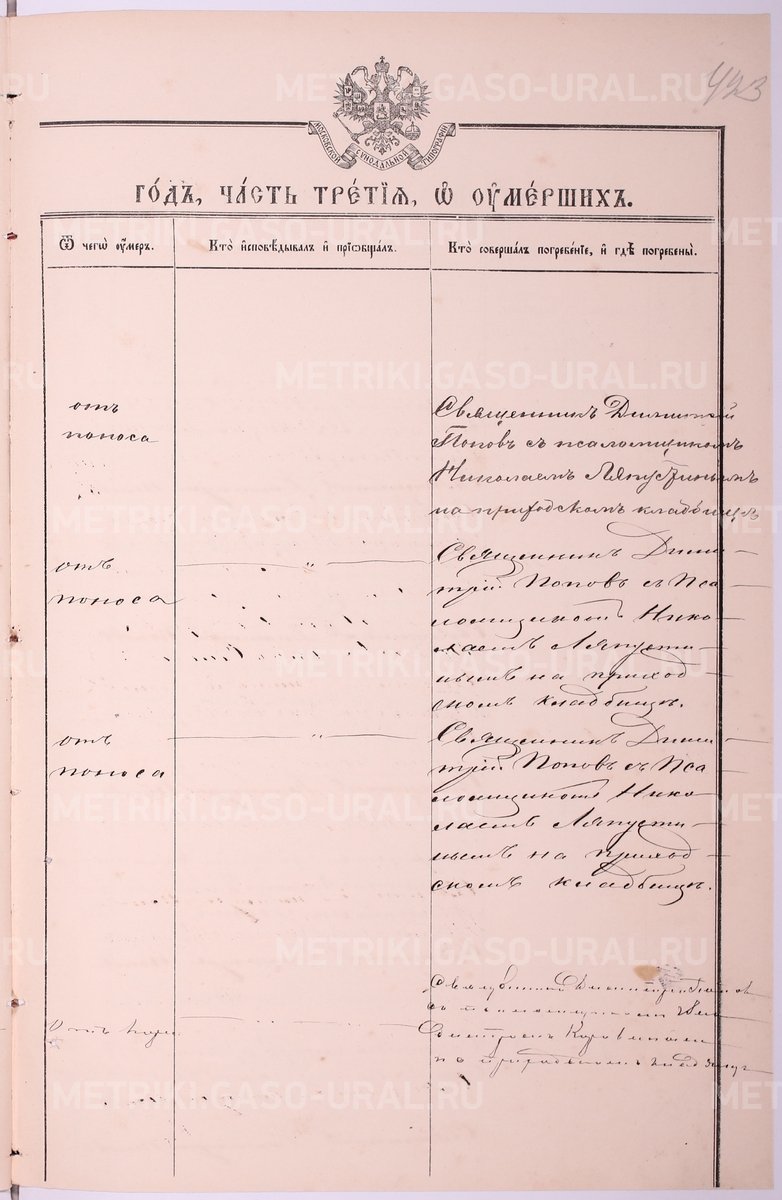 423
МОСКОВСКОЙ СѴНОДАЛЬНОЙ ТИПОГРАФІИ
ГО́ДЪ, ЧА́СТЬ ТРЕ́ТІЯ, Ѡ҆ ОУ҆МЕ́РШИХЪ.
Ѿ чегѡ̀ оу҆́меръ.
Кто̀ и҆сповѣ́дывалъ и҆ прїѡбща́лъ.
Кто̀ соверша́лъ погребе́нїе, и҆ гдѣ̀ погребены̀.
отъ
поноса
Священникъ Димитрій
Поповъ съ псаломщикомъ
Николаемъ Ляпустинымъ
на приходскомъ кладбищѣ
отъ
поноса
Священникъ Дими-
трій Поповъ съ Пса-
ломщикомъ Нико-
лаемъ Ляпусти-
нымъ на приход-
скомъ кладбищѣ.
отъ
поноса
Священникъ Дими-
трій Поповъ съ Пса-
ломщикомъ Нико-
лаемъ Ляпусти-
нымъ на приход-
скомъ кладбищѣ.
Отъ
Священникъ Димитрій Поповъ
съ псаломщикомъ
Коровинымъ
на приходскомъ кладбищѣ
METRIKI.GASO-URAL.RU